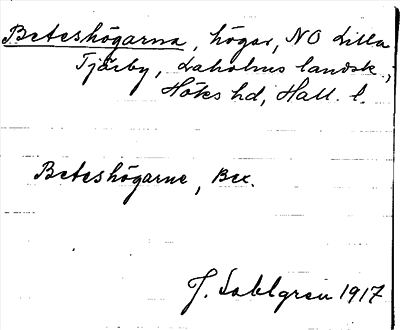 Beteshögarna, högar, NO Lilla
Tjärby, Laholms landsk.,
Höks hd, Hall. l.
Beteshögarne, Bex.
J. Sahlgren 1917